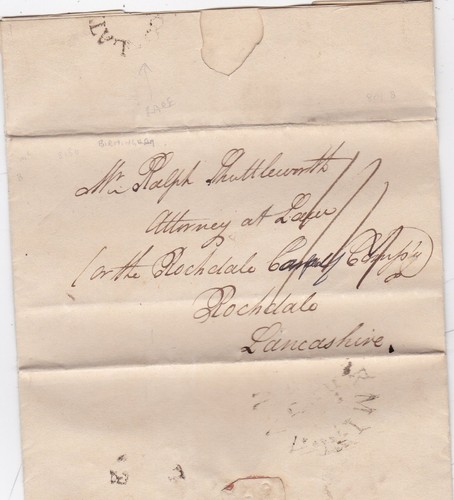 RARE
Mr. Ralph Shuttleworth
Attorney at Law
(or the Rochdale Canal Comp'y)
Rochdale
Lancashire.